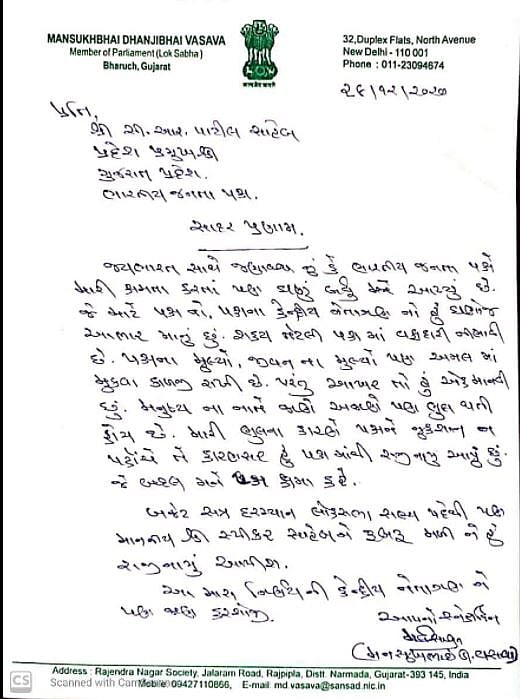 MANSUKHBHAI DHANJIBHAI VASAVA
Member of Parliament (Lok Sabha)
Bharuch, Gujarat
32,Duplex Flats, North Avenue
New Delhi - 110 001
Phone : 011-23094674
૨૮/૧૨/૨૦૨૦
પ્રતિ,
શ્રી સી.આર. પાટીલ સાહેબ
પ્રદેશ પ્રમુખશ્રી
ગુજરાત પ્રદેશ.
ભારતીય જનતા પક્ષ.
સાદર પ્રણામ.
જયભારત સાથે જણાવવાનું કે ભારતીય જનતા પક્ષે
મારી ક્ષમતા કરતાં પણ ઘણું બધું મને આપ્યું છે.
જે માટે પક્ષ નો, પક્ષના કેન્દ્રીય નેતાગણ નો હું ઘણોજ
આભાર માનું છું. શક્ય તેટલી પક્ષ માં વફાદારી નીભાવી
છે. પક્ષના મુલ્યો, જીવન ના મુલ્યો પણ અમલ માં
મુકવા કાળજી રાખી છે. પરંતુ આખરે તો હું એક માનવી
છું. મનુષ્ય ના નાતે જાણે અજાણે પણ ભુલ થતી
હોય છે. મારી ભુલના કારણે પક્ષને નુકશાન ન
પહોંચે તે કારણસર હું પક્ષ માંથી રાજીનામુ આપું છું.
જે બદલ મને પક્ષ ક્ષમા કરે.
બજેટ સત્ર દરમ્યાન લોકસભા સભ્ય પદેથી પણ
માનનીય શ્રી સ્પીકર સાહેબને રૂબરૂ મળી ને હું
રાજીનામું આપીશ.
આ મારા નિર્ણયની કેન્દ્રીય નેતાગણ ને
પણ જાણ કરશોજી.
આપનો સ્નેહાધિન
(મનસુખભાઈ ડી. વસાવા)
Address : Rajendra Nagar Society, Jalaram Road, Rajpipla, Distt. Narmada, Gujarat-393 145, India
Mobile: 09427110866, E-mail: md.vasava@sansad.nic.in
CS Scanned with